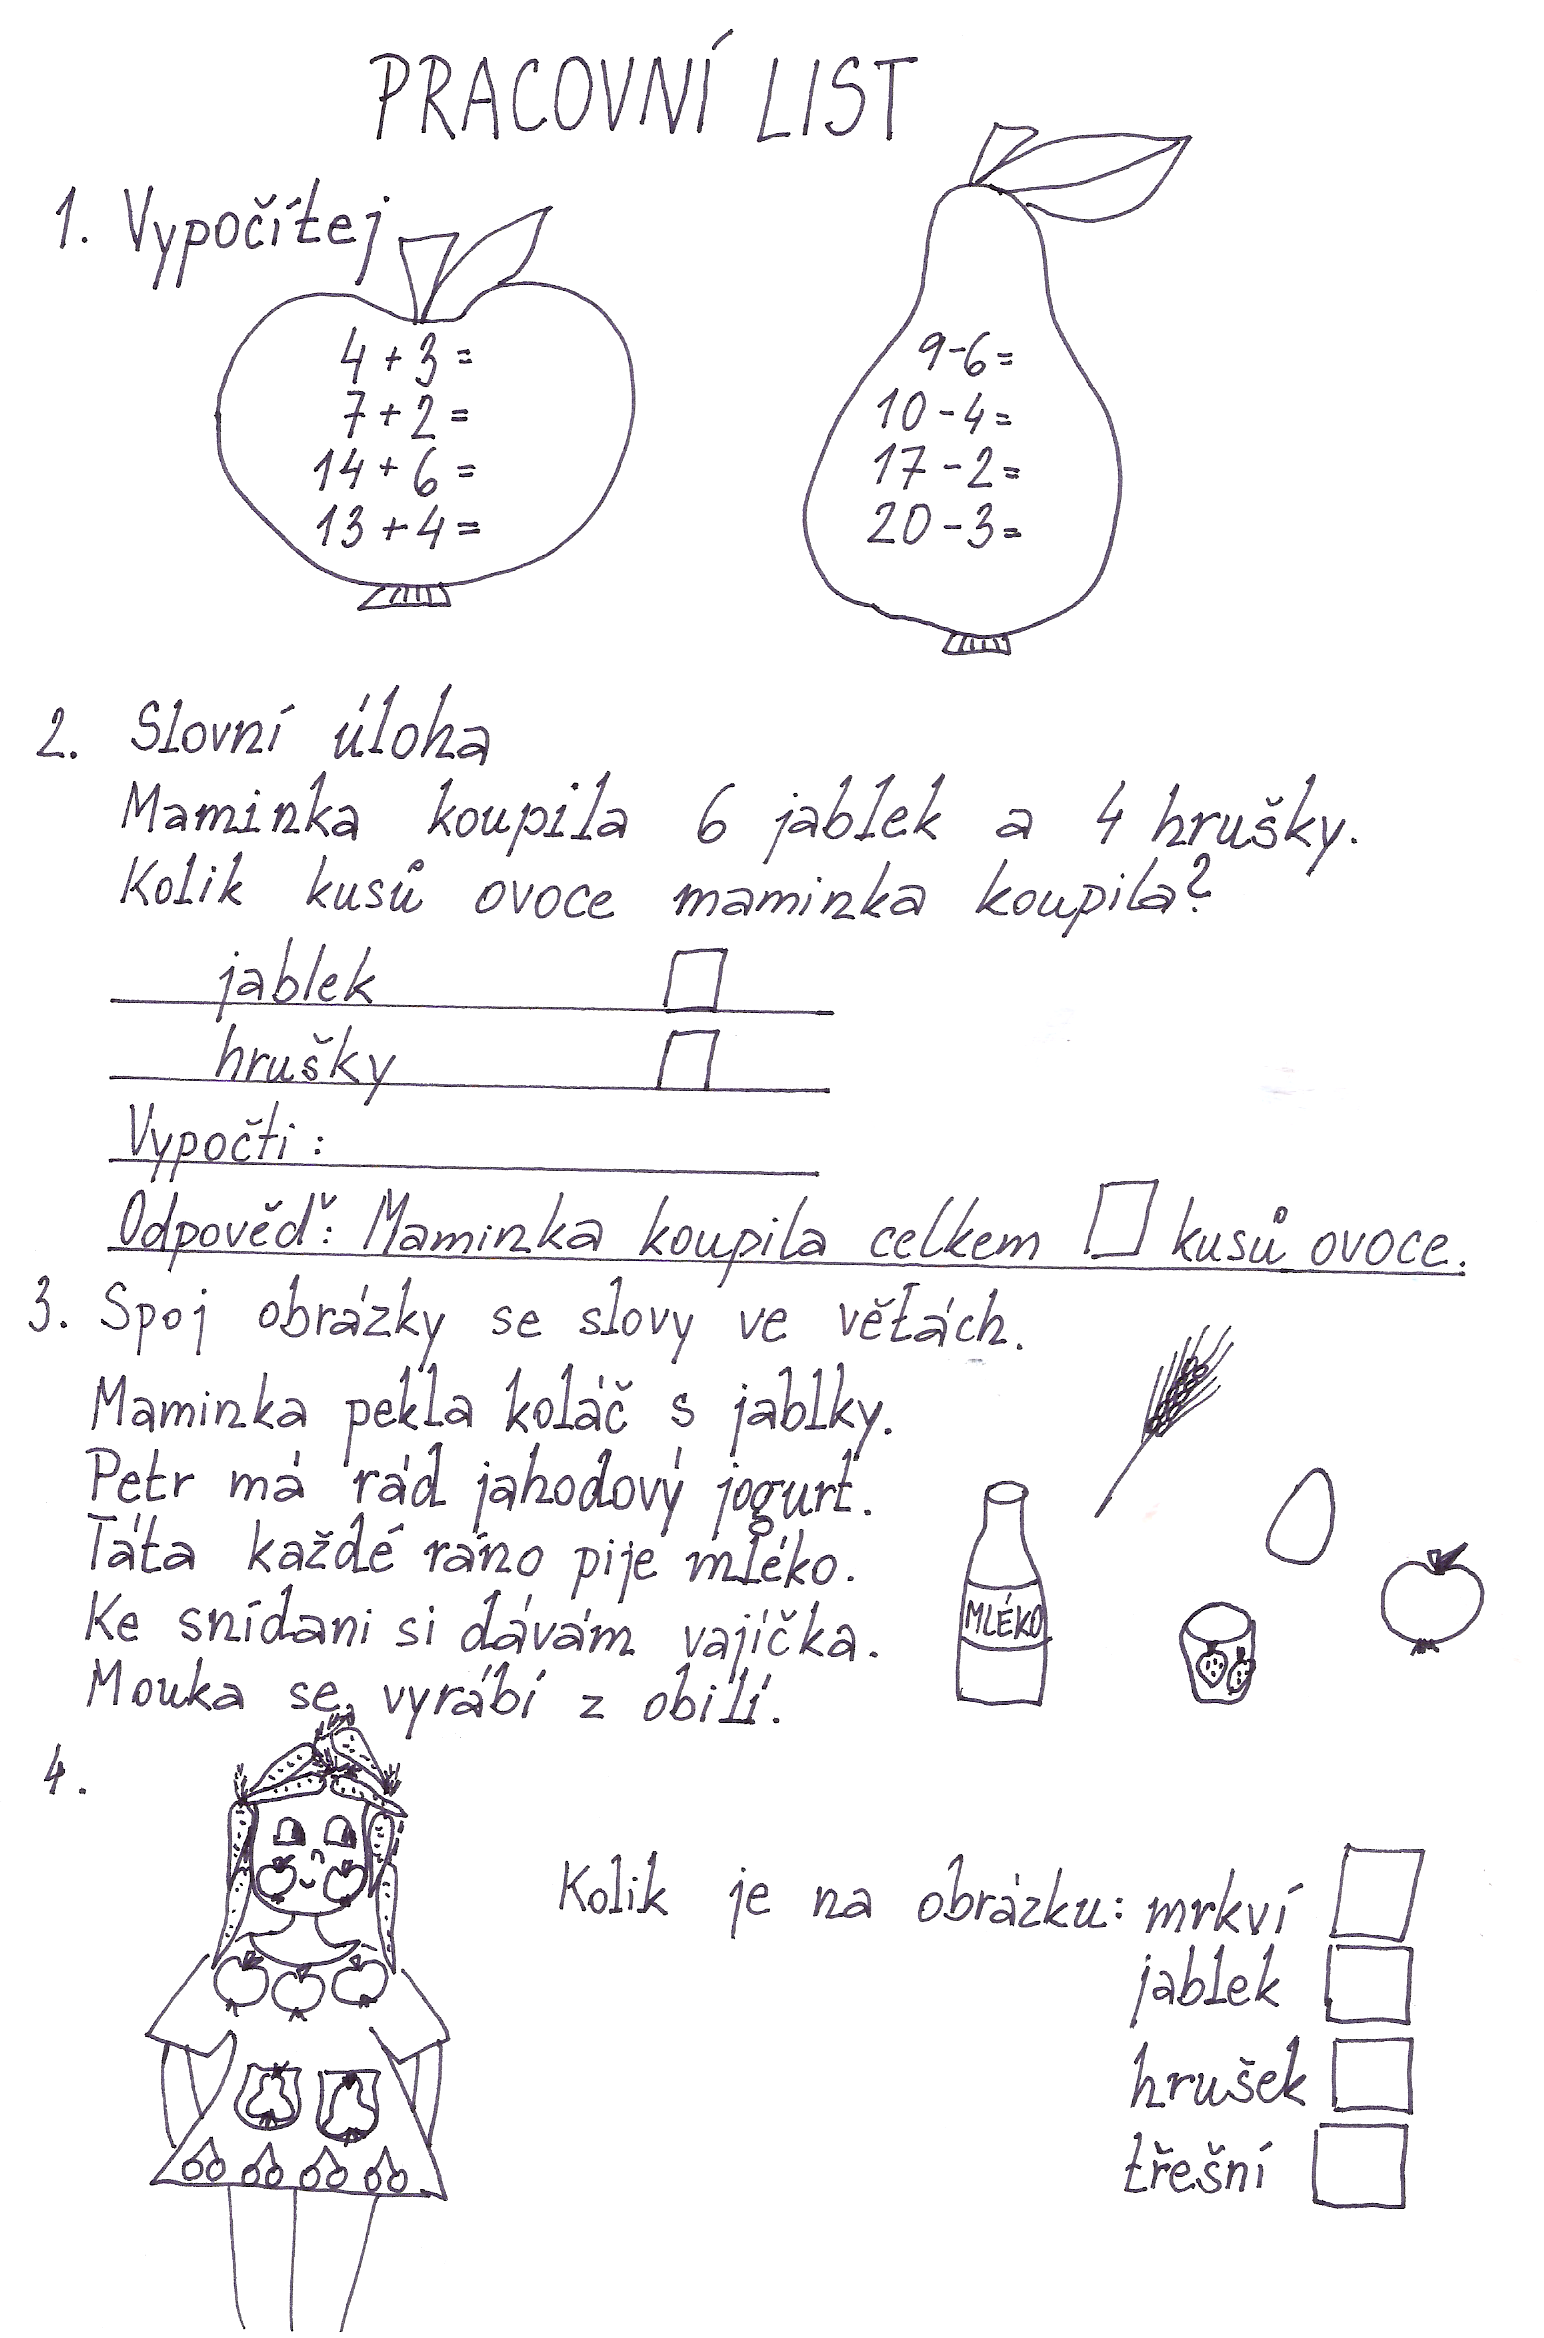 PRACOVNÍ LIST
1. Vypočítej
4 + 3 =
7 + 2 =
14 + 6 =
13 + 4 =
9 - 6 =
10 - 4 =
17 - 2 =
20 - 3 =
2. Slovní úloha
Maminka koupila 6 jablek a 4 hrušky.
Kolik kusů ovoce maminka koupila?
jablek
hrušky
Vypočti :
Odpověď: Maminka koupila celkem kusů ovoce.
3. Spoj obrázky se slovy ve větách.
Maminka pekla koláč s jablky.
Petr má rád jahodový jogurt.
Táta každé ráno pije mléko.
Ke snídani si dávám vajíčka.
Mouka se vyrábí z obilí.
MLÉKO
4.
Kolik je na obrázku: mrkví
jablek
hrušek
třešní